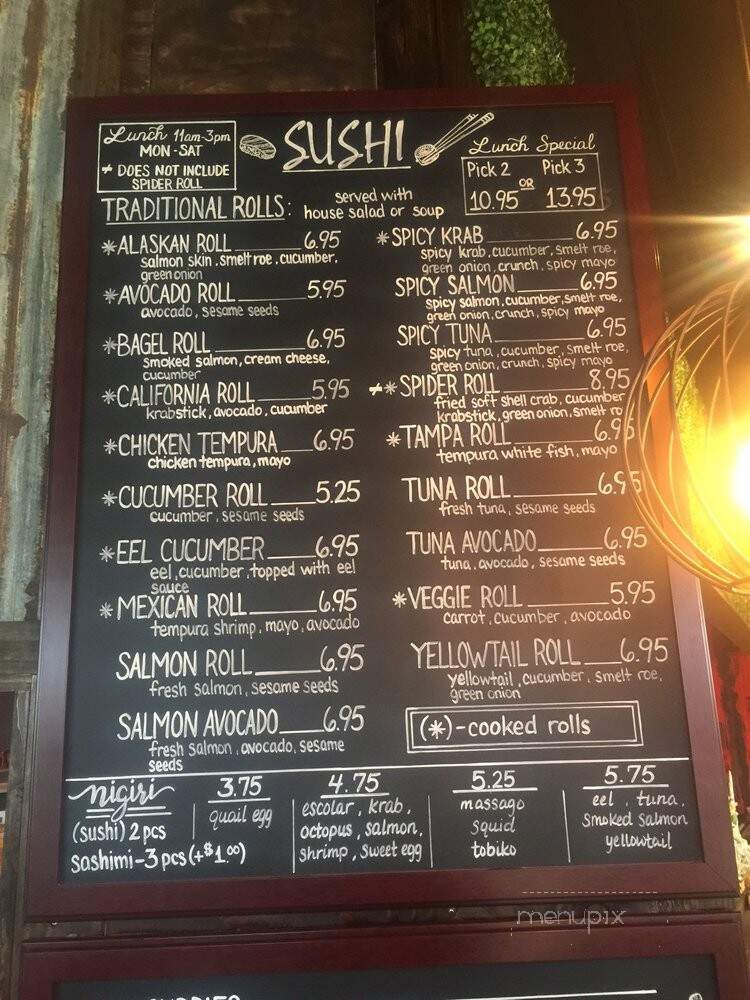 Lunch 11am-3pm
MON-SAT
≠ DOES NOT INCLUDE
SPIDER ROLL
SUSHI
Lunch Special
Pick 2 OR Pick 3
10.95 13.95
TRADITIONAL ROLLS: served with
house salad or soup
*ALASKAN ROLL 6.95
salmon skin, smelt roe, cucumber,
green onion
*AVOCADO ROLL 5.95
avocado, sesame seeds
*BAGEL ROLL 6.95
smoked salmon, cream cheese,
cucumber
*CALIFORNIA ROLL 5.95
krabstick, avocado, cucumber
*CHICKEN TEMPURA 6.95
chicken tempura, mayo
*CUCUMBER ROLL 5.25
cucumber, sesame seeds
*EEL CUCUMBER 6.95
eel, cucumber, topped with eel
sauce
*MEXICAN ROLL 6.95
tempura shrimp, mayo, avocado
SALMON ROLL 6.95
fresh salmon, sesame seeds
SALMON AVOCADO 6.95
fresh salmon, avocado, sesame
seeds
*SPICY KRAB 6.95
spicy krab, cucumber, smelt roe,
green onion, crunch, spicy mayo
SPICY SALMON 6.95
spicy salmon, cucumber, smelt roe,
green onion, crunch, spicy mayo
SPICY TUNA 6.95
spicy tuna, cucumber, smelt roe,
green onion, crunch, spicy mayo
≠*SPIDER ROLL 8.95
fried soft shell crab, cucumber
krabstick, green onion, smelt ro
*TAMPA ROLL 6.95
tempura white fish, mayo
TUNA ROLL 6.95
fresh tuna, sesame seeds
TUNA AVOCADO 6.95
tuna, avocado, sesame seeds
*VEGGIE ROLL 5.95
carrot, cucumber, avocado
YELLOWTAIL ROLL 6.95
yellowtail, cucumber, smelt roe,
green onion
(*)-cooked rolls
nigiri
(sushi) 2 pcs
sashimi-3 pcs (+$1.00)
3.75
quail egg
4.75
escolar, krab,
octopus, salmon,
shrimp, sweet egg
5.25
massago
squid
tobiko
5.75
eel, tuna,
smoked salmon
yellowtail
menupix